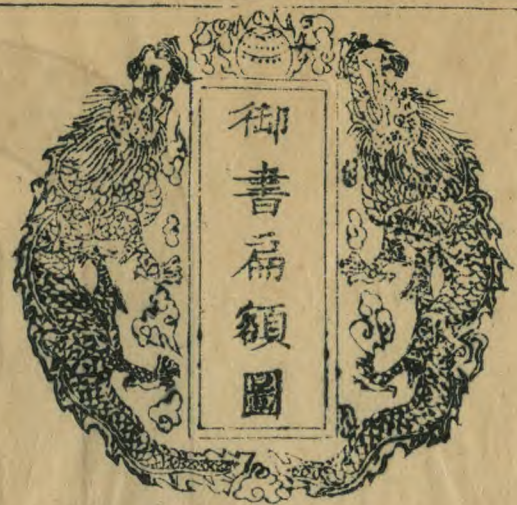 御書扁額圖